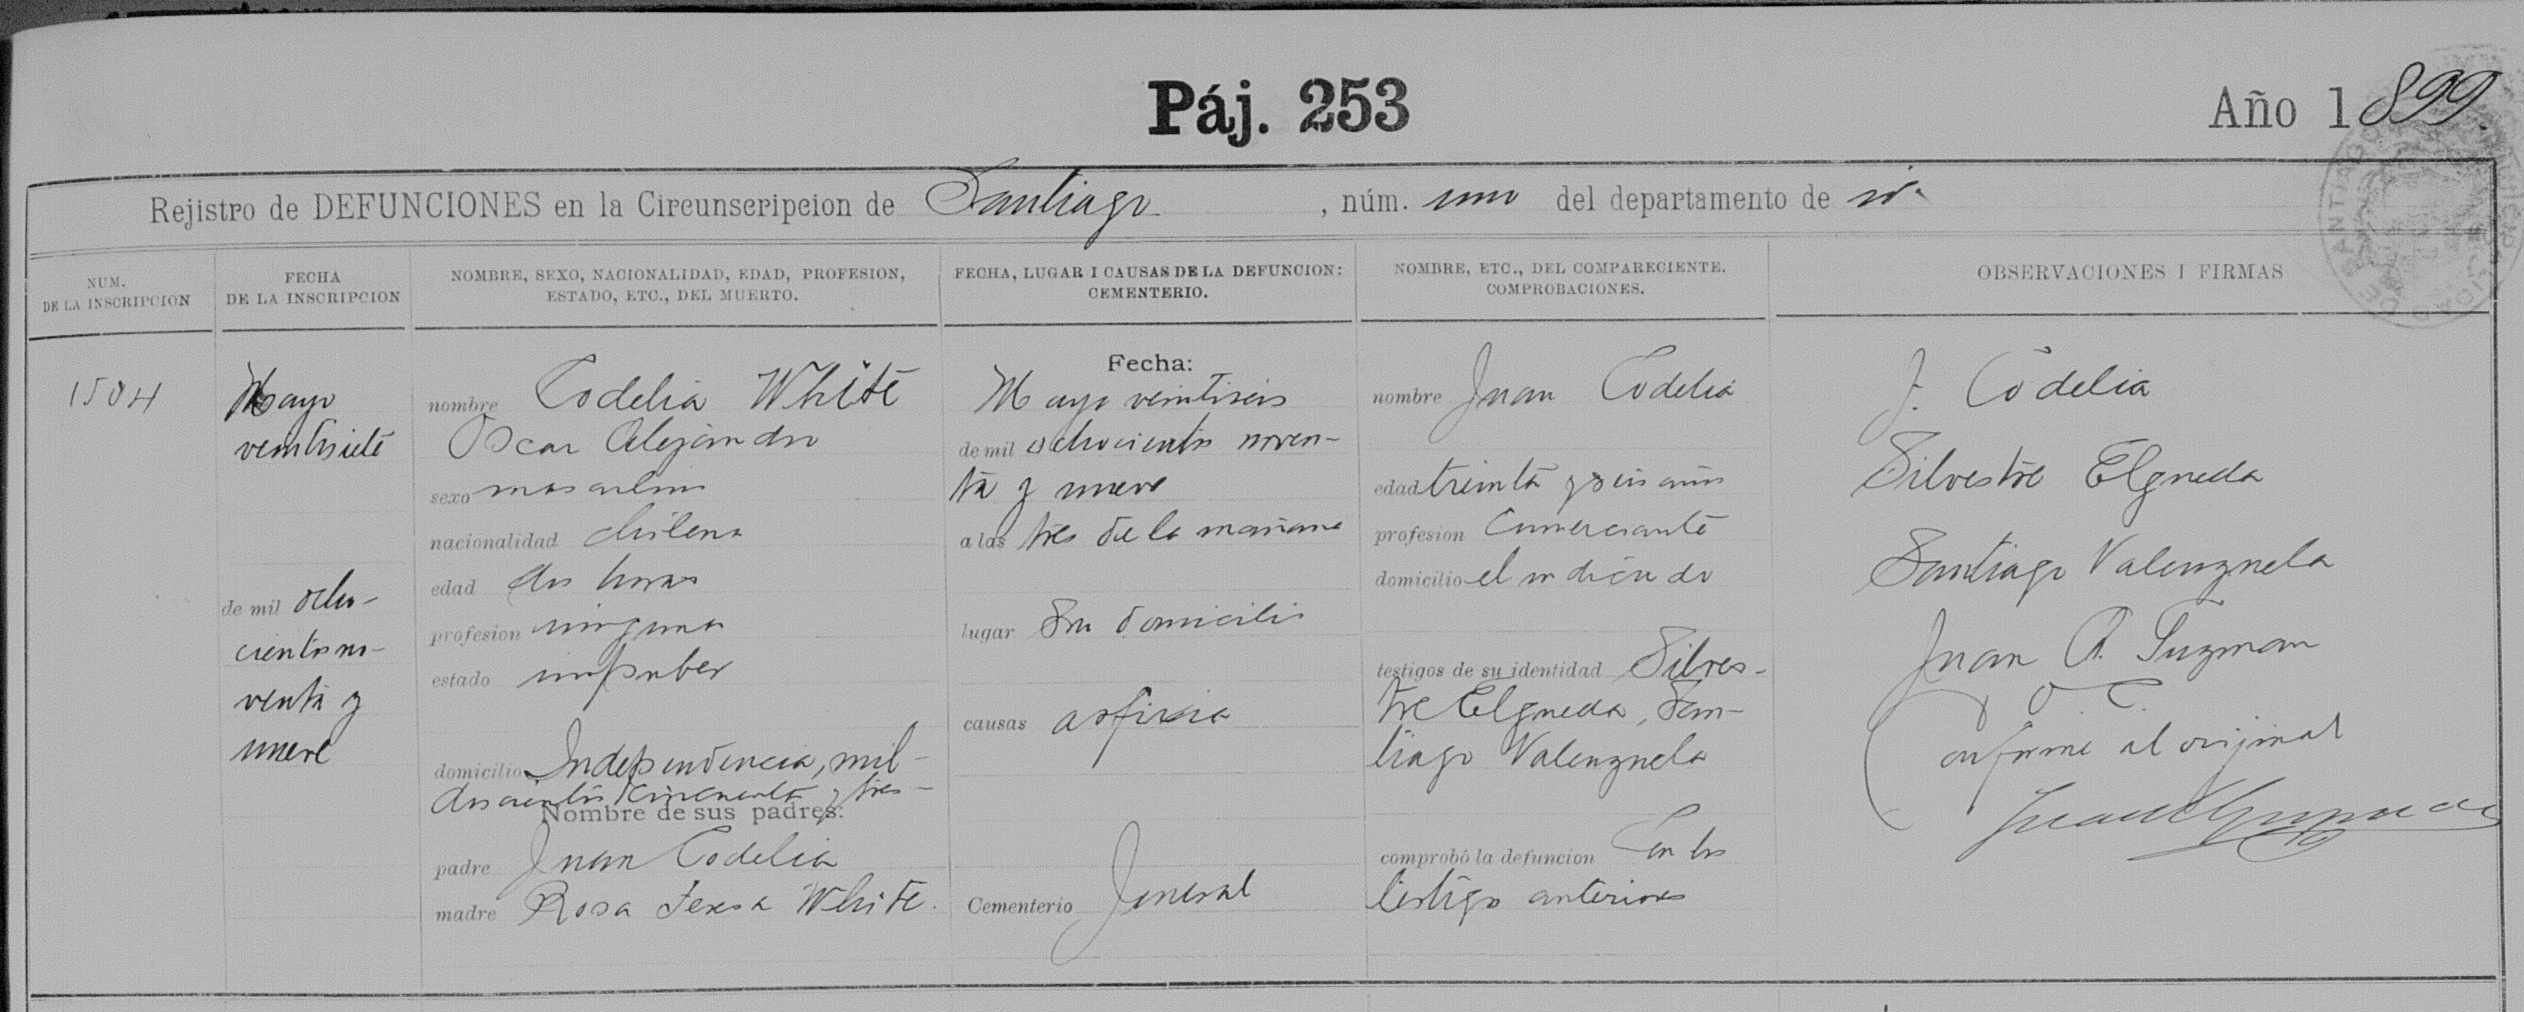 Páj. 253
Año 1899.
Rejistro de DEFUNCIONES en la Circunscripcion de Santiago, núm. uno del departamento de id.
NUM.
DE LA INSCRIPCION
FECHA
DE LA INSCRIPCION
NOMBRE, SEXO, NACIONALIDAD, EDAD, PROFESION,
ESTADO, ETC., DEL MUERTO.
FECHA, LUGAR I CAUSAS DE LA DEFUNCION:
CEMENTERIO.
NOMBRE, ETC., DEL COMPARECIENTE.
COMPROBACIONES.
OBSERVACIONES I FIRMAS
1504
Mayo
veintisiete
de mil ocho-
cientos no-
venta y
nueve
nombre Codelia White
Oscar Alejandro
sexo masculino
nacionalidad chilena
edad dos horas
profesion ninguna
estado impuber
domicilio Independencia, mil
doscientos cincuenta y tres
Nombre de sus padres:
padre Juan Codelia
madre Rosa Teresa White.
Fecha:
Mayo veintiseis
de mil ochocientos noven-
ta y nueve
a las tres de la mañana
lugar Su domicilio
causas asfixia
Cementerio Jeneral
nombre Juan Codelia
edad treinta y seis años
profesion Comerciante
domicilio el indicado
testigos de su identidad Silves-
tre Elgueda, San-
tiago Valenzuela
comprobó la defuncion Con los
testigos anteriores
J. Codelia
Silvestre Elgueda
Santiago Valenzuela
Juan A. Guzman
O. C.
Conforme al orijinal